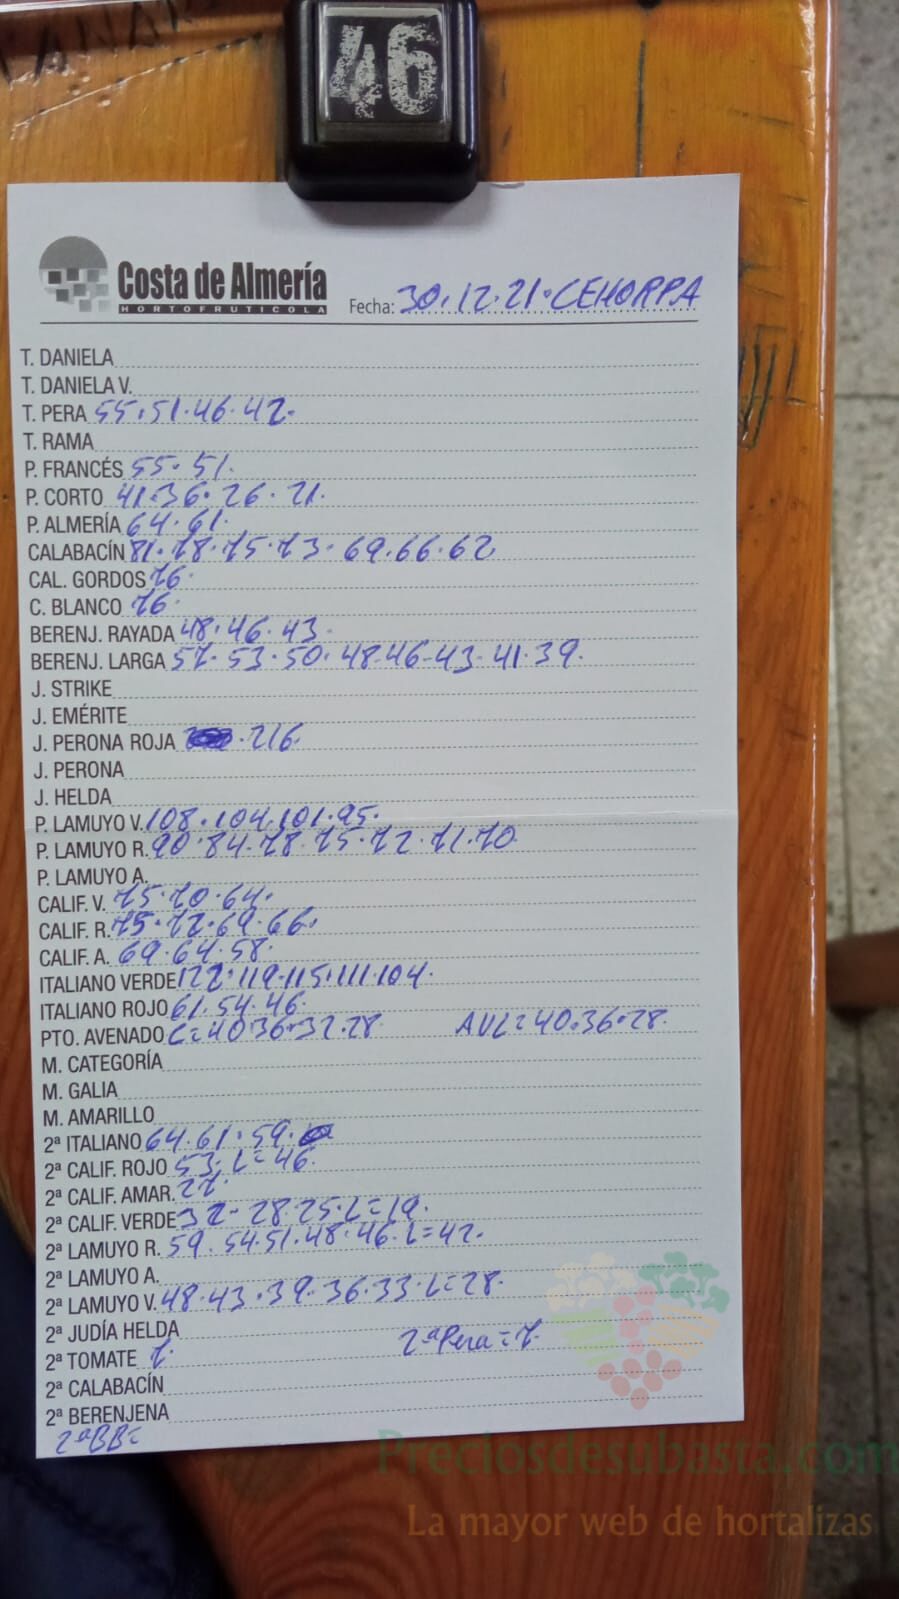 46
Costa de Almería
HORTOFRUTICOLA
Fecha: 30.12.21. CEHORPA
T. DANIELA
T. DANIELA V.
T. PERA 55.51.46.42.
T. RAMA
P. FRANCÉS 55.51.
P. CORTO 41.36.26.21.
P. ALMERÍA 64.61.
CALABACÍN 81.78.75.73.69.66.62
CAL. GORDOS 76.
C. BLANCO 76.
BERENJ. RAYADA 48.46.43.
BERENJ. LARGA 57.53.50.48-46-43-41.39.
J. STRIKE
J. EMÉRITE
J. PERONA ROJA .216.
J. PERONA
J. HELDA
P. LAMUYO V. 108.104.101.95.
P. LAMUYO R. 90.84.78.75.72.71.70
P. LAMUYO A.
CALIF. V. 75.70.64.
CALIF. R. 75.72.69.66.
CALIF. A. 69.64.58.
ITALIANO VERDE 122.119.115.111.104.
ITALIANO ROJO 61.54.46.
PTO. AVENADO C=40.36.32.28 AVL=40.36.28.
M. CATEGORÍA
M. GALIA
M. AMARILLO
2ª ITALIANO 64.61.59.
2ª CALIF. ROJO 53. L=46.
2ª CALIF. AMAR. 27.
2ª CALIF. VERDE 32-28.25.L=19.
2ª LAMUYO R. 59.54.51.48.46.L=42.
2ª LAMUYO A.
2ª LAMUYO V. 48.43.39.36.33.L=28.
2ª JUDÍA HELDA
2ª TOMATE 7. 2ªPera=7.
2ª CALABACÍN
2ª BERENJENA
2ªBB=
Preciosdesubasta.com
La mayor web de hortalizas